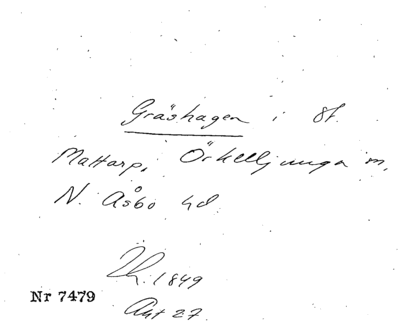 Gräshagen i St.
Mattarp, Örkelljunga m.
N. Åsbo hd
1849
Nr 7479
Akt 27.